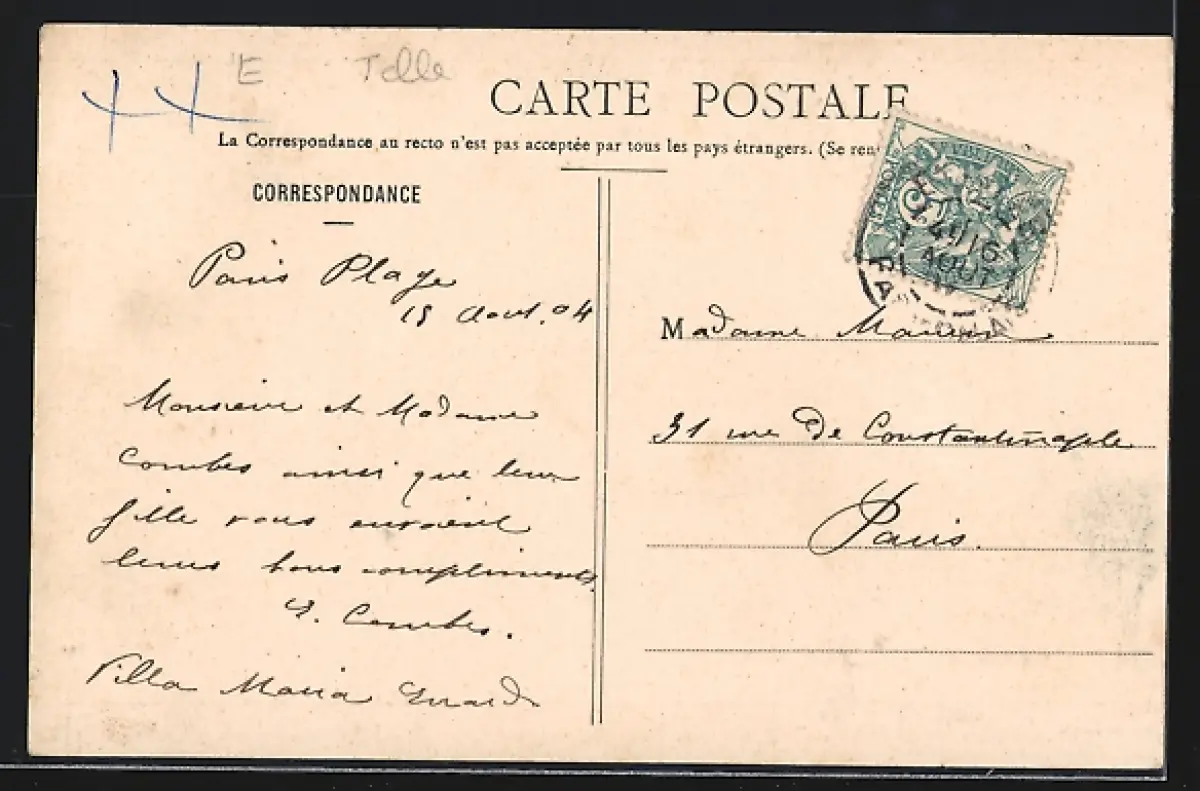 E Telle
CARTE POSTALE
La Correspondance au recto n'est pas acceptée par tous les pays étrangers. (Se ren
CORRESPONDANCE
Paris Plage
15 Aout. 04
Monsieur et Madame
Combes ainsi que leur
fille vous envoient
leurs bons compliments
Combes.
Villa Maria
5
16
AOUT
Madame
31 rue de Constantinople
Paris.